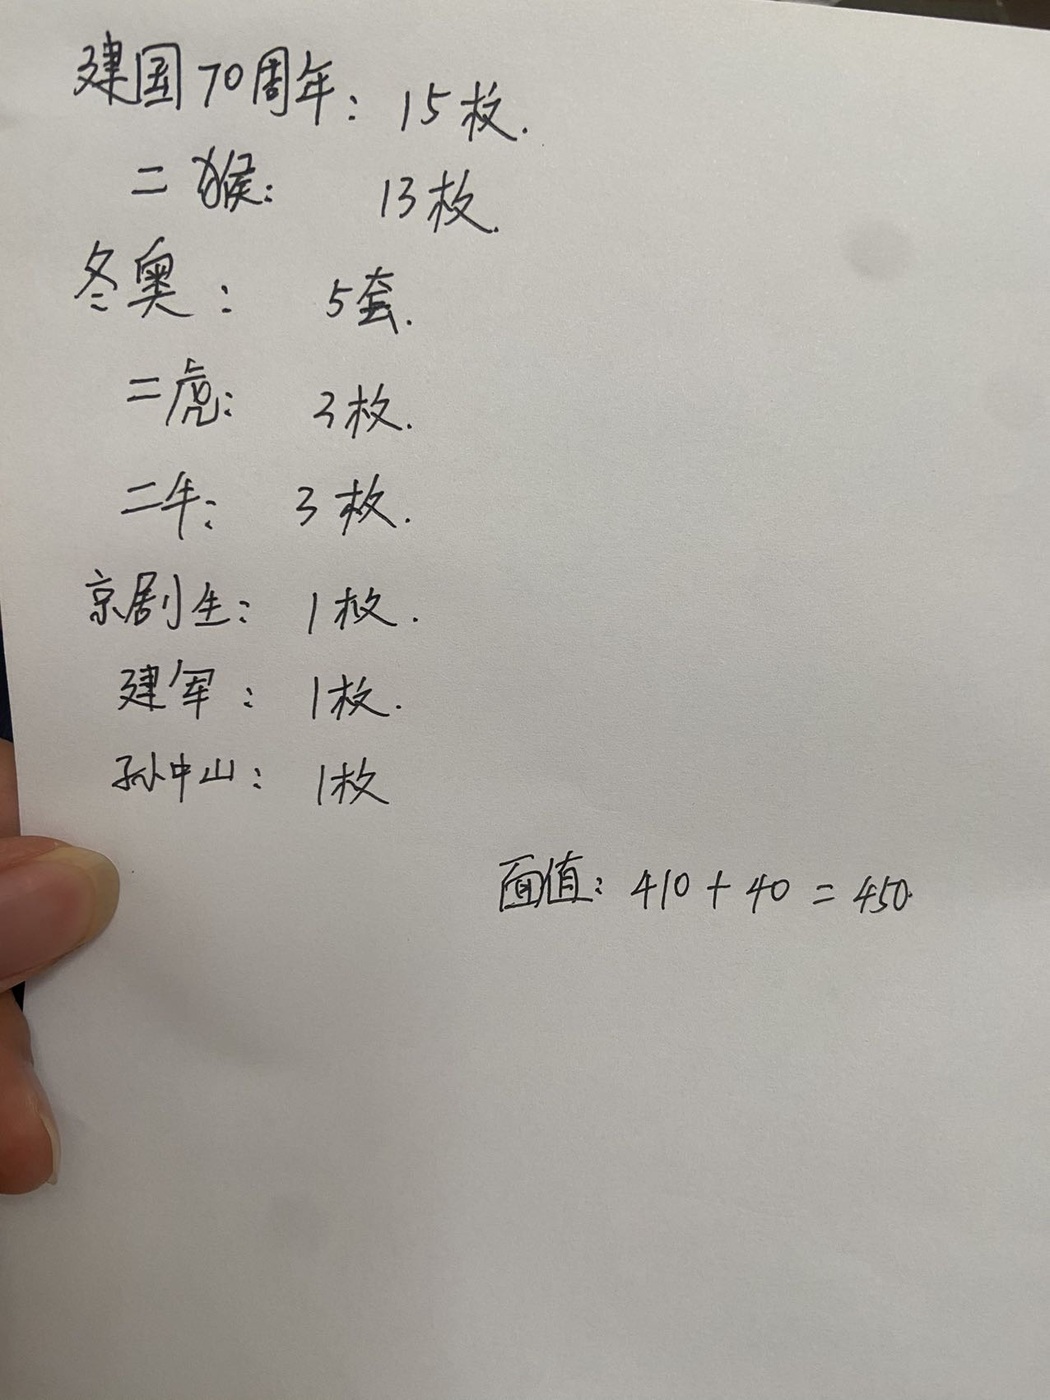 建国70周年: 15枚.
二猴: 13枚.
冬奥: 5套.
二虎: 3枚.
二牛: 3枚.
京剧生: 1枚.
建军: 1枚.
孙中山: 1枚
面值: 410+40=450.